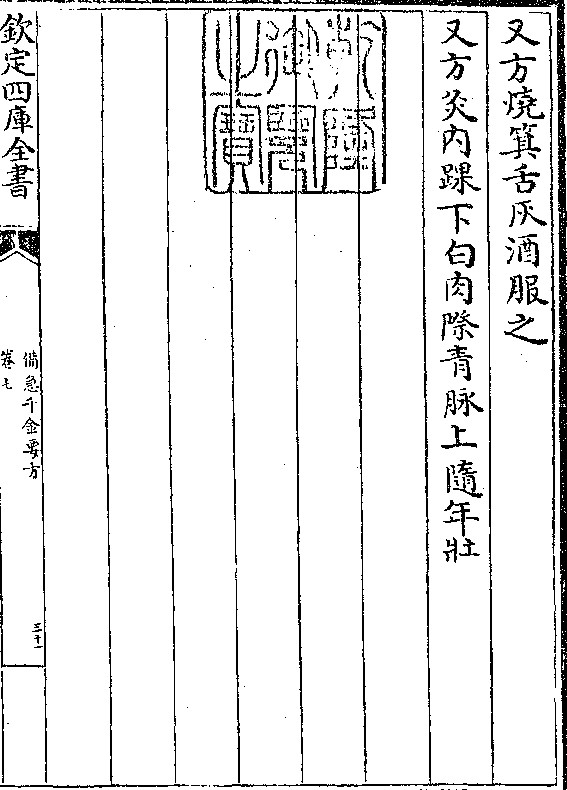 又方燒箕舌灰酒服之
又方灸内踝下白肉際青脉上隨年壯
乾隆
御覽
之寶
欽定四庫全書
備急千金要方
卷七
三十一